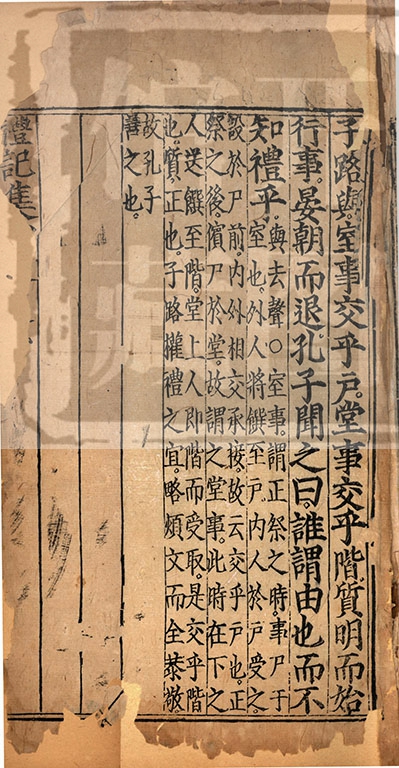 子路與。室事交乎戶。堂事交乎階。質明而始
行事。晏朝而退。孔子聞之曰。誰謂由也而不
知禮乎。與去聲○室事。謂正祭之時。事尸于
室也。外人將饌至戶。内人於戶受之。
設於尸前。内外相交承接。故云交乎戶也。正
祭之後。儐尸於堂。故謂之堂事。此時在下之
人送饌至階。堂上人即階而受取。是交乎階
也。質正也。子路權禮之宜。略煩文而全恭敬。
故孔子
善之也。
禮記集